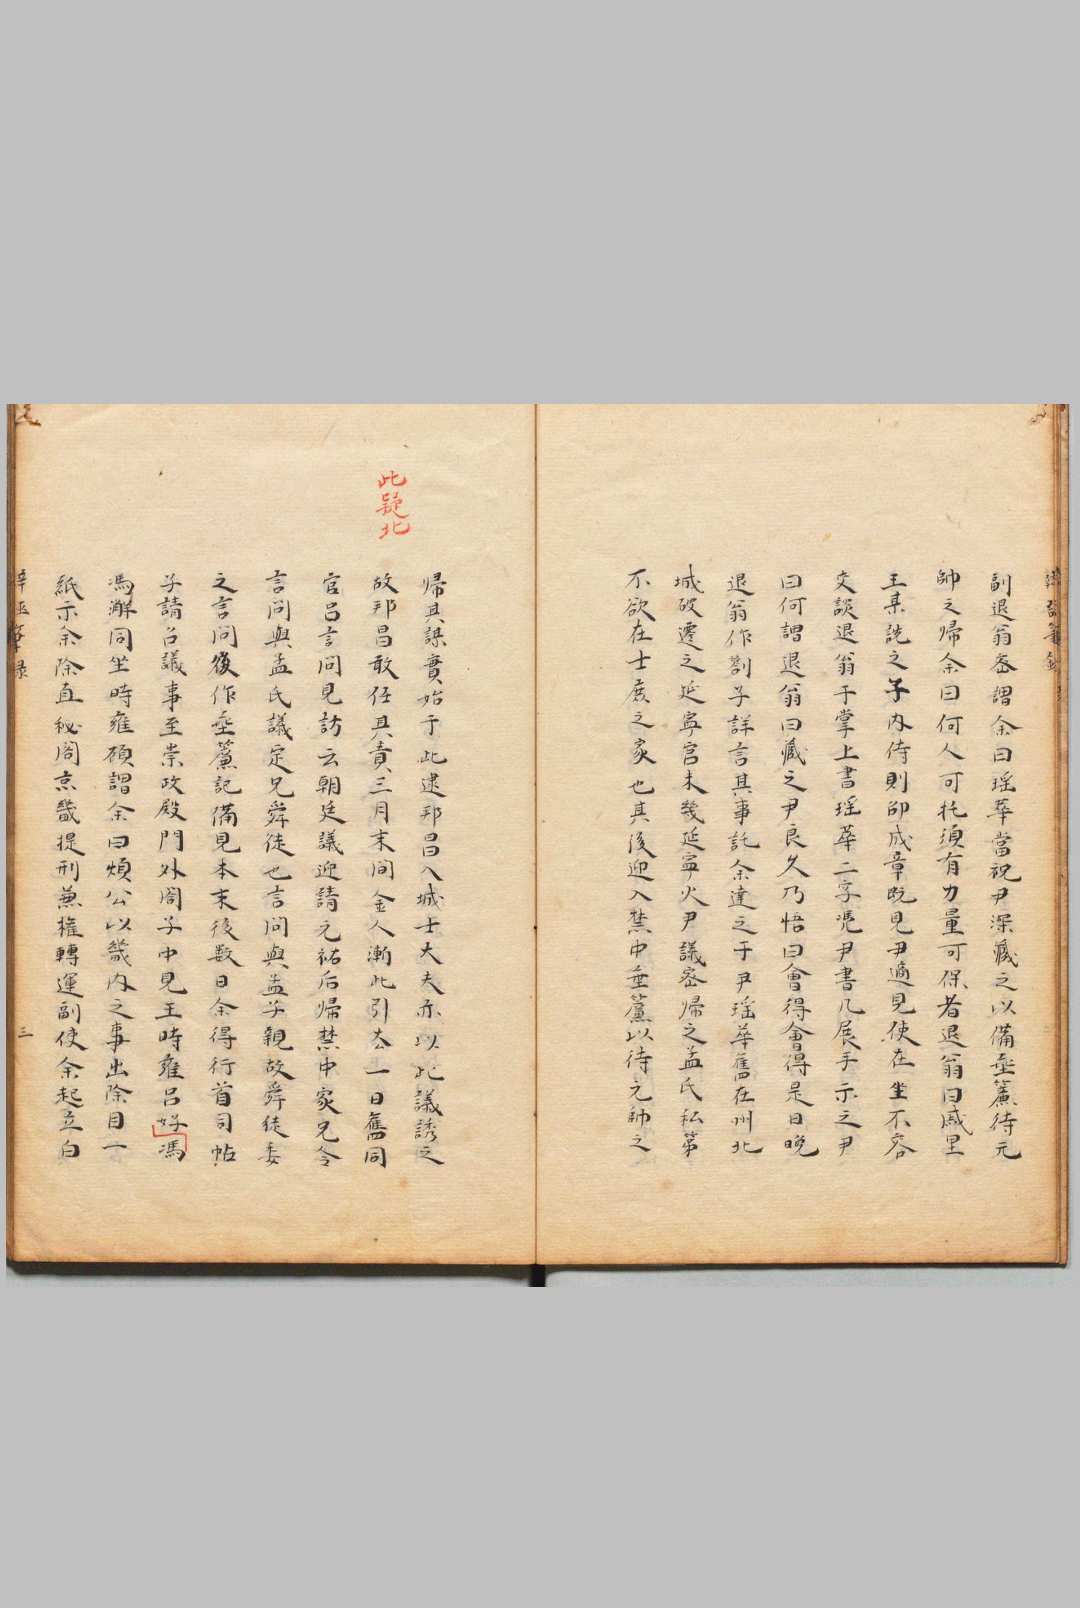 副退翁密謂余曰瑶華當祝尹深藏之以備垂簾待元
帥之帰余曰何人可托須有力量可保者退翁曰戚里
王某說之子內侍則邵成章既見尹適見使在坐不容
交談退翁于掌上書瑶華二字慿尹書几展手示之尹
曰何謂退翁曰藏之尹良久乃悟曰會得會得是日晚
退翁作劄子詳言其事託余達之于尹瑶華舊在州北
城破遷之延寧宮未幾延寧火尹議密帰之孟氏私第
不欲在士庶之家也其後迎入禁中垂簾以待元帥之
帰其謀實始于此逮邦昌入城士大夫亦以此議誘之
故邦昌敢任其責三月末间金人漸此引去一日舊同
官呂言问見訪云朝廷議迎請元祐后帰禁中家兄令
言问與孟氏議定兄舜徒也言问與孟子親故舜徒委
之言问後作垂簾記備見本末後数日余得行首司帖
子請召議事至崇政殿門外閤子中見王時雍呂好馮
馮澥同坐時雍碩謂余曰煩公以畿内之事出除目一
紙示余除直秘閣京畿提刑兼権轉運副使余起立白
此疑北
三